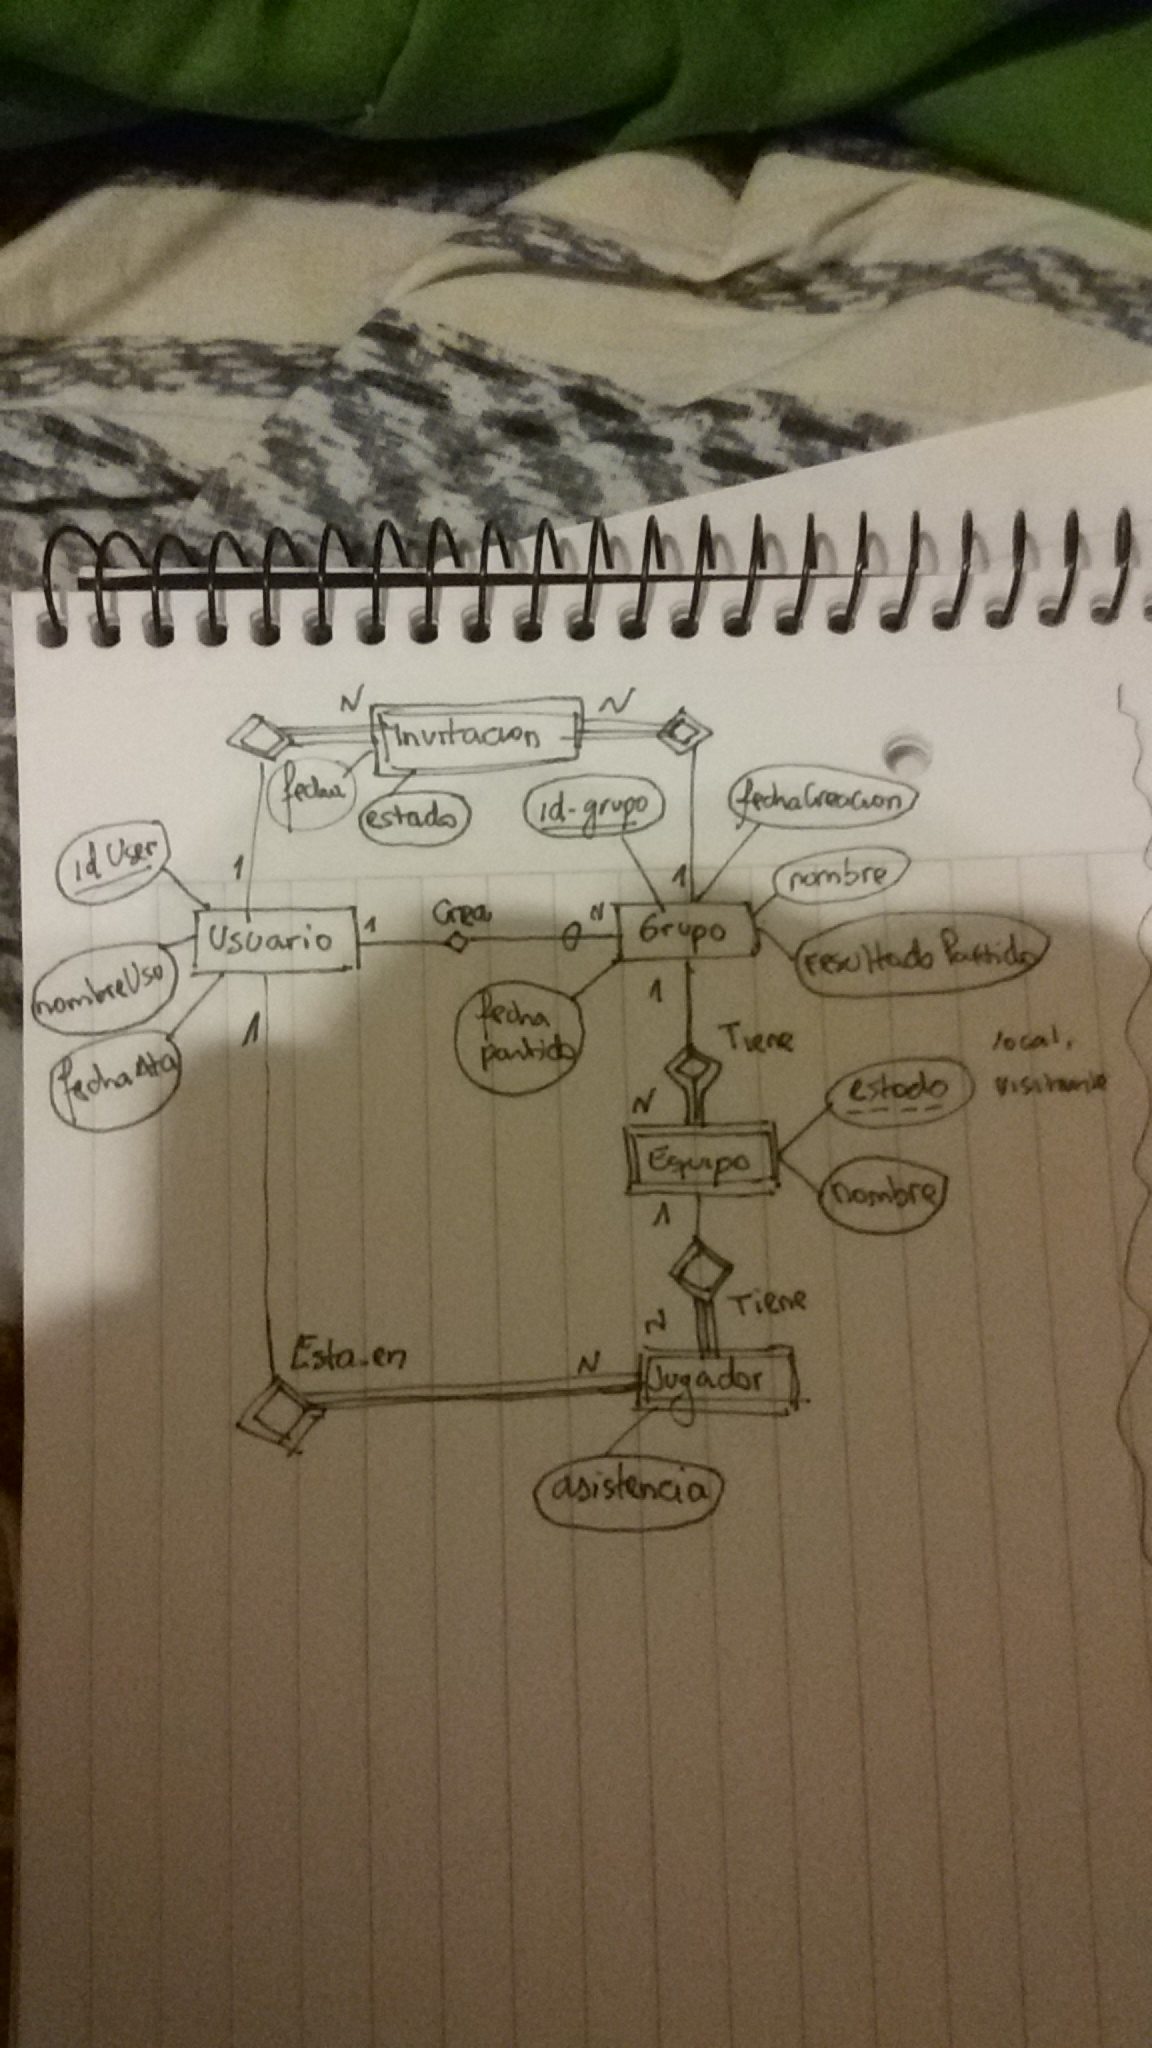 N
N
Invitacion
fecha
estado
id-grupo
fechaCreacion
id User
1
1
nombre
Usuario
1
Crea
0
N
Grupo
resultadoPartido
nombreUso
1
fecha
partido
1
Tiene
local,
visitante
fechaAlta
N
estado
Equipo
nombre
1
Tiene
N
Esta-en
N
Jugador
asistencia